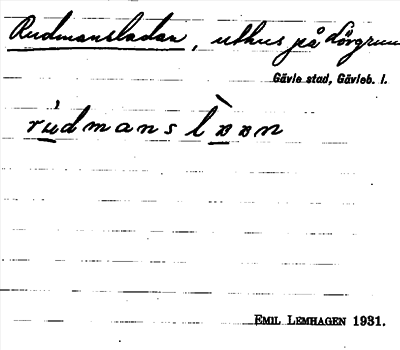 Rudmansladan, uthus på Lörgrun
Gävle stad, Gävleb. l.
rúdmanslòɒɒn
EMIL LEMHAGEN 1931.